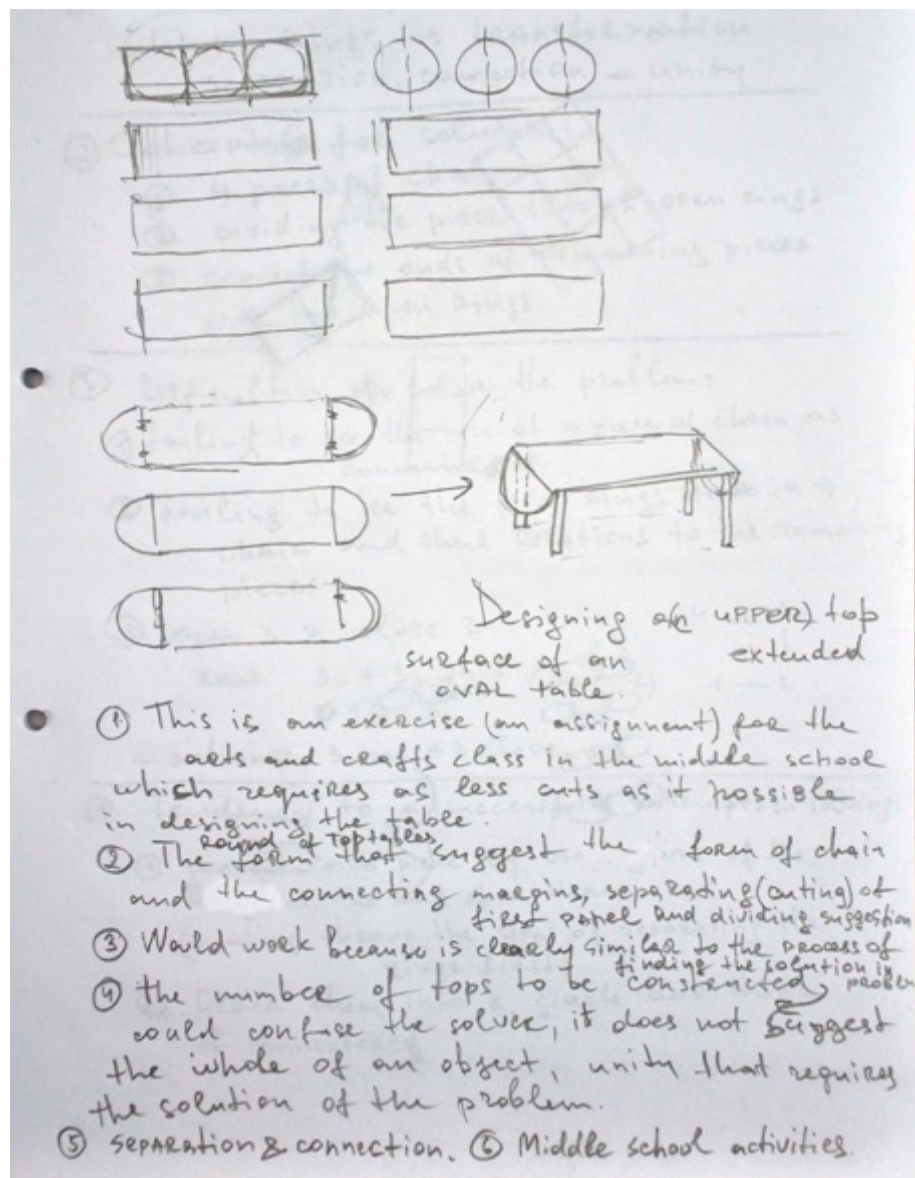 Designing a(n UPPER) top
surface of an extended
OVAL table.
① This is an exercise (an assignment) for the
arts and crafts class in the middle school
which requires as less cuts as it possible
in designing the table.
Round of Top tables
② The form that suggest the form of chain
and the connecting margins, separating (cuting) of
first panel and dividing suggestion
③ Would work because is clearly similar to the process of
finding the solution in
④ the number of tops to be constructed problem
could confuse the solver, it does not suggest
the whole of an object, unity that requires
the solution of the problem.
⑤ Separation & connection. ⑥ Middle school activities.